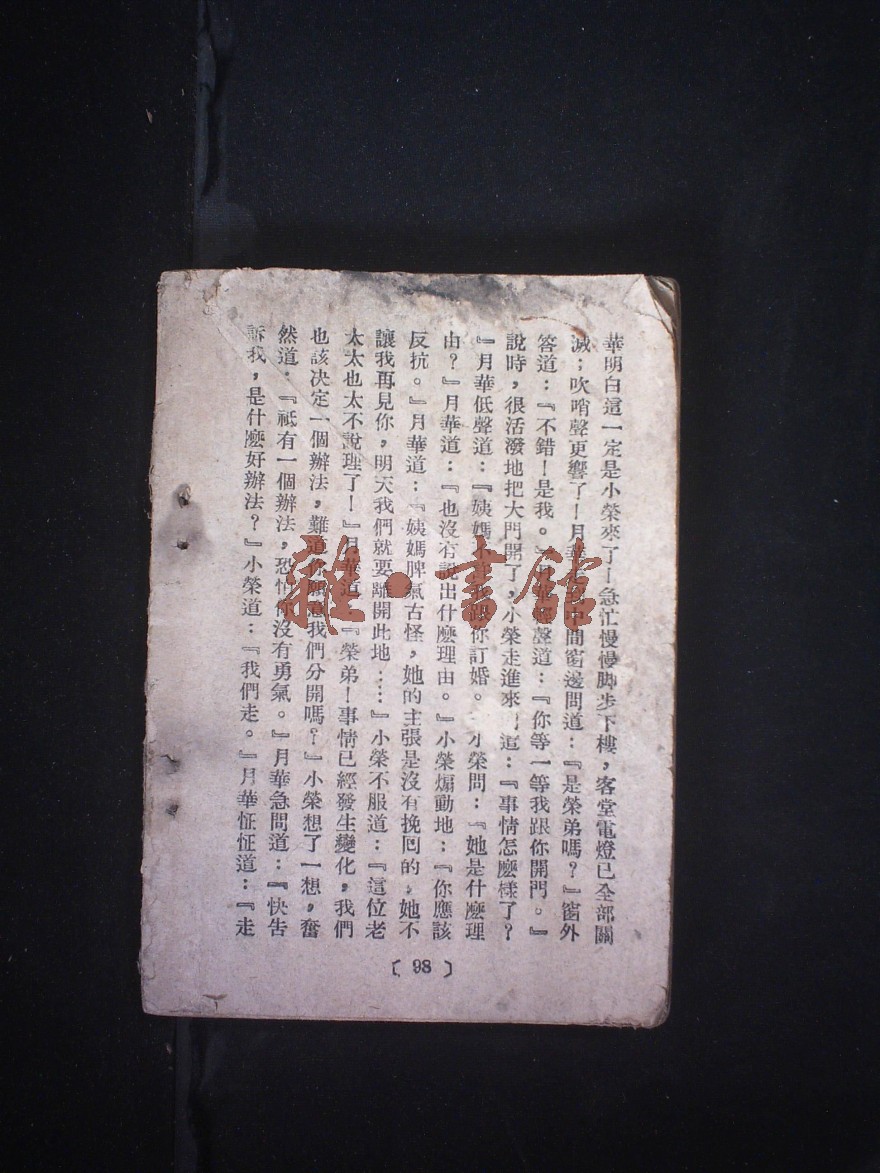 華明白這一定是小榮來了！急忙慢慢脚步下樓，客堂電燈已全部關
滅；吹哨聲更響了！月華中間窗邊問道：『是榮弟嗎？』窗外
答道：『不錯！是我。』聲道：『你等一等我跟你開門。』
說時，很活潑地把大門開了，小榮走進來道：『事情怎麼樣了？
』月華低聲道：『姨媽不許我跟你訂婚。』小榮問：『她是什麼理
由？』月華道：『也沒有說出什麼理由。』小榮煽動地：『你應該
反抗。』月華道：『姨媽脾氣古怪，她的主張是沒有挽回的，她不
讓我再見你，明天我們就要離開此地……』小榮不服道：『這位老
太太也太不說理了！』月華道：『榮弟！事情已經發生變化，我們
也該决定一個辦法，難道你願意我們分開嗎？』小榮想了一想，奮
然道：『祇有一個辦法，恐怕你沒有勇氣。』月華急問道：『快告
訴我，是什麼好辦法？』小榮道：『我們走。』月華怔怔道：『走
〔98〕
雜·書館